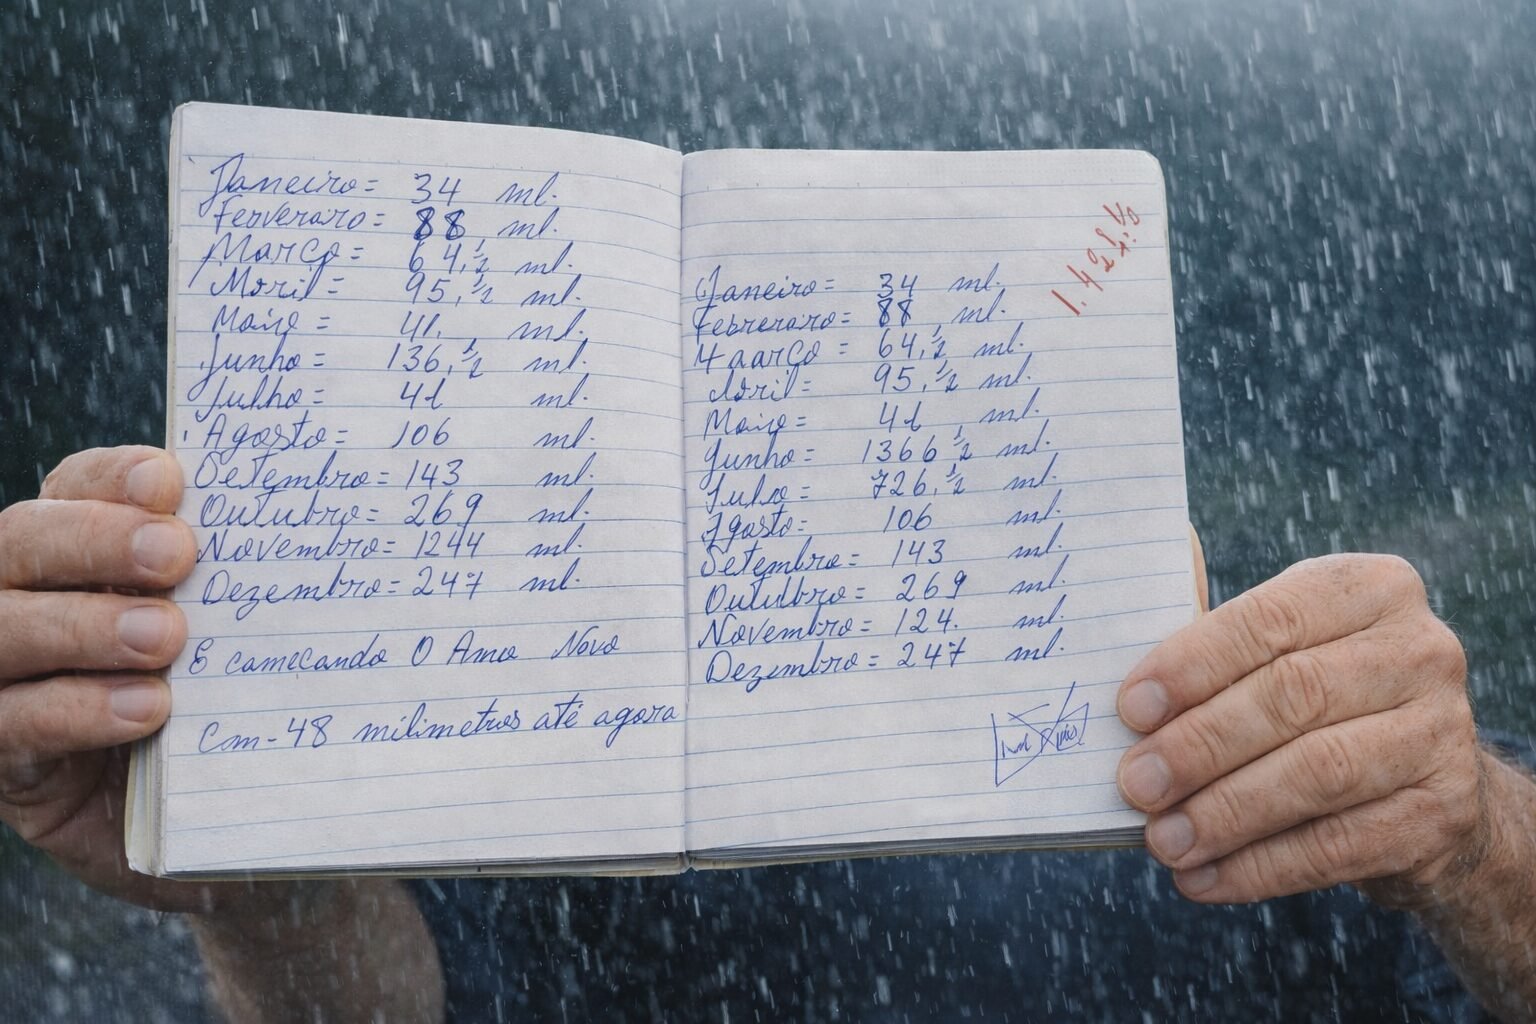 Janeiro = 34 ml.
Ferveraro = 88 ml.
Março = 64,½ ml.
Abril = 95,½ ml.
Maio = 41. ml.
Junho = 136,½ ml.
Julho = 41 ml.
Agosto = 106 ml.
Setembro = 143 ml.
Outubro = 269 ml.
Novembro = 1244 ml.
Dezembro = 247 ml.
E começando O Ano Novo
Com - 48 milimetros até agora
Janeiro = 34 ml.
Febreraro = 88 ml.
Maarço = 64,½ ml.
Abril = 95,½ ml.
Maio = 41 ml.
Junho = 1366½ ml.
Julho = 726,½ ml.
Agosto = 106 ml.
Setembro = 143 ml.
Outulbro = 269 ml.
Novembro = 124. ml.
Dezembro = 247 ml.